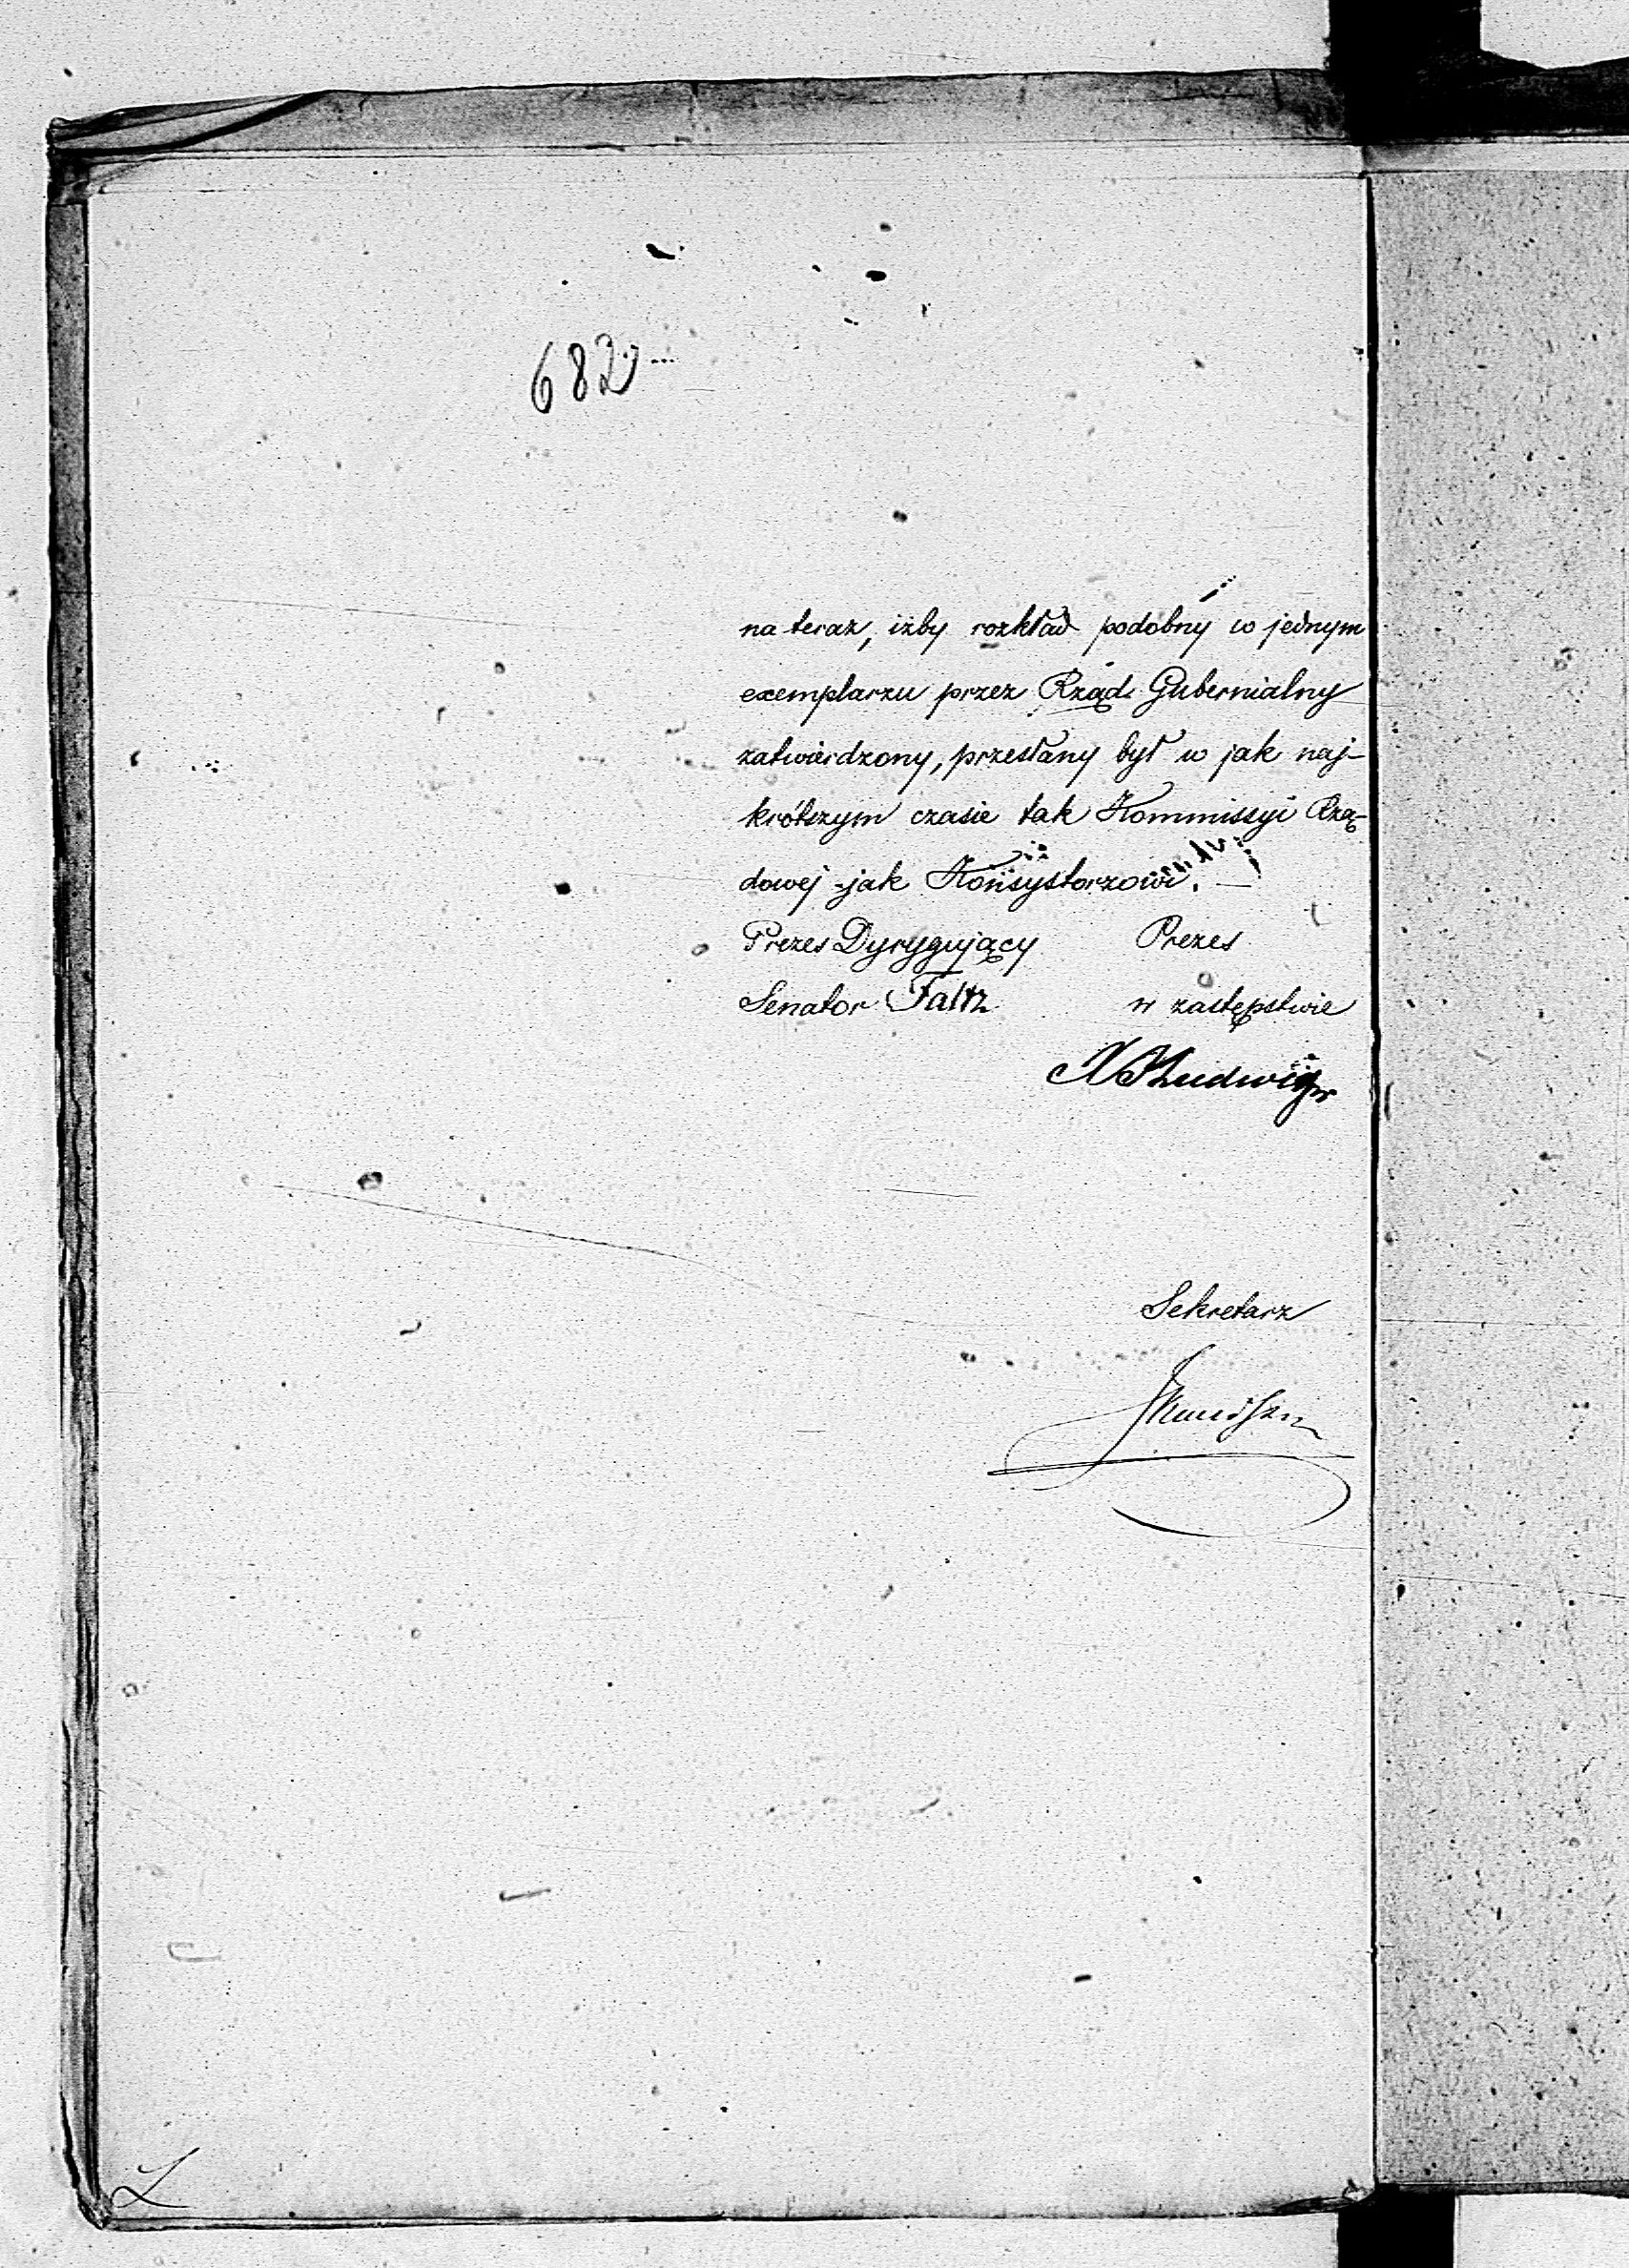 682
na teraz, iżby rozkład podobny w jednym
exemplarzu przez Rząd Gubernialny
zatwierdzony, przesłany był w jak naj-
krótszym czasie tak Kommissyi Rzą-
dowej jak Konsystorzowi.
Prezes Dyrygujący Prezes
Senator Faltz w zastępstwie
Ludwig
Sekretarz